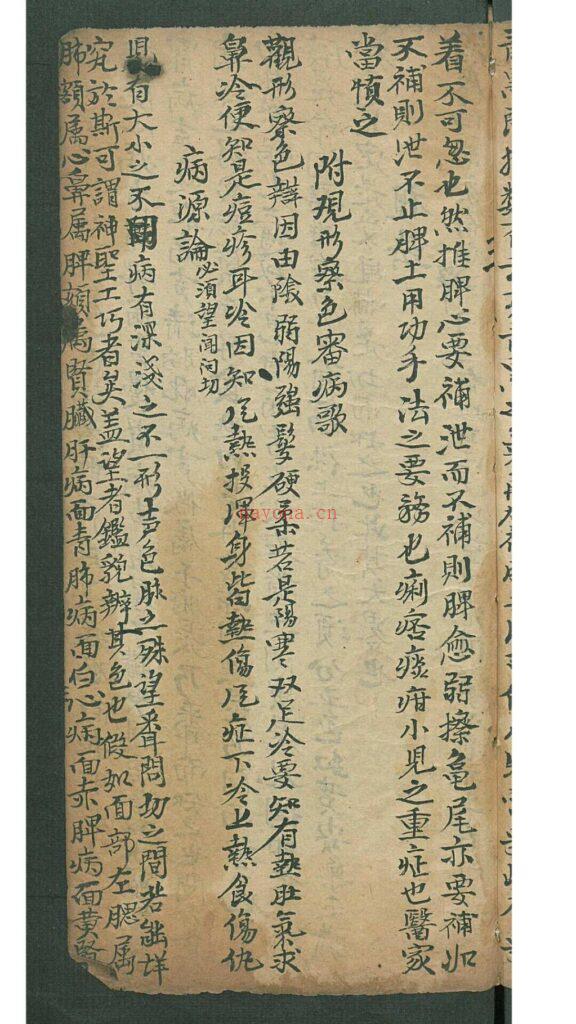 着不可忽也然推脾心要補泄而不補則脾愈弱揉龟尾亦要補如
不補則泄不止脾土用功手法之要務也痢痞痰疳小児之重症也醫家
當慎之
附現形察色審病歌
觀形察色辯因由陰弱陽强髮硬柔若是陽寒双足冷要知有熱肚氣求
鼻冷便知是痘疹耳冷因知風熱投渾身皆熱傷風症下冷上熱食傷仇
病源論必須望闻问切
児有大小之不同病有深淺之不一形声色脉之殊望聞問切之間若能详
究於斯可謂神聖工巧者矣盖望者鑑貌辨其色也假如面部左腮属
肺額属心鼻属脾頦属腎臟肝病面青肺病面白心病面赤脾病面黄腎
nayona.cn